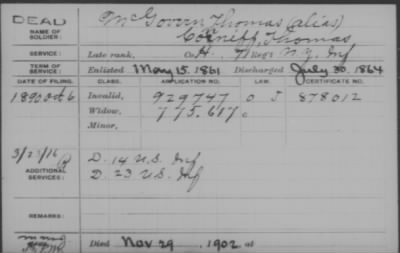 DEAD
NAME OF SOLDIER:
McGovern Thomas (alias)
Thomas
SERVICE: Late rank, Co. H. 71 Reg't N.Y. Inf
TERM OF SERVICE: Enlisted May 15. 1861 Discharged July 30. 1864
DATE OF FILING. CLASS. APPLICATION NO. LAW. CERTIFICATE NO.
1890 Oct 6 Invalid, 929747 0 J 878012
Widow, 775.617
Minor,
ADDITIONAL SERVICES:
D. 14 U.S. Inf
D. 23 U.S. Inf
REMARKS:
Died Nov 29, 1902, at